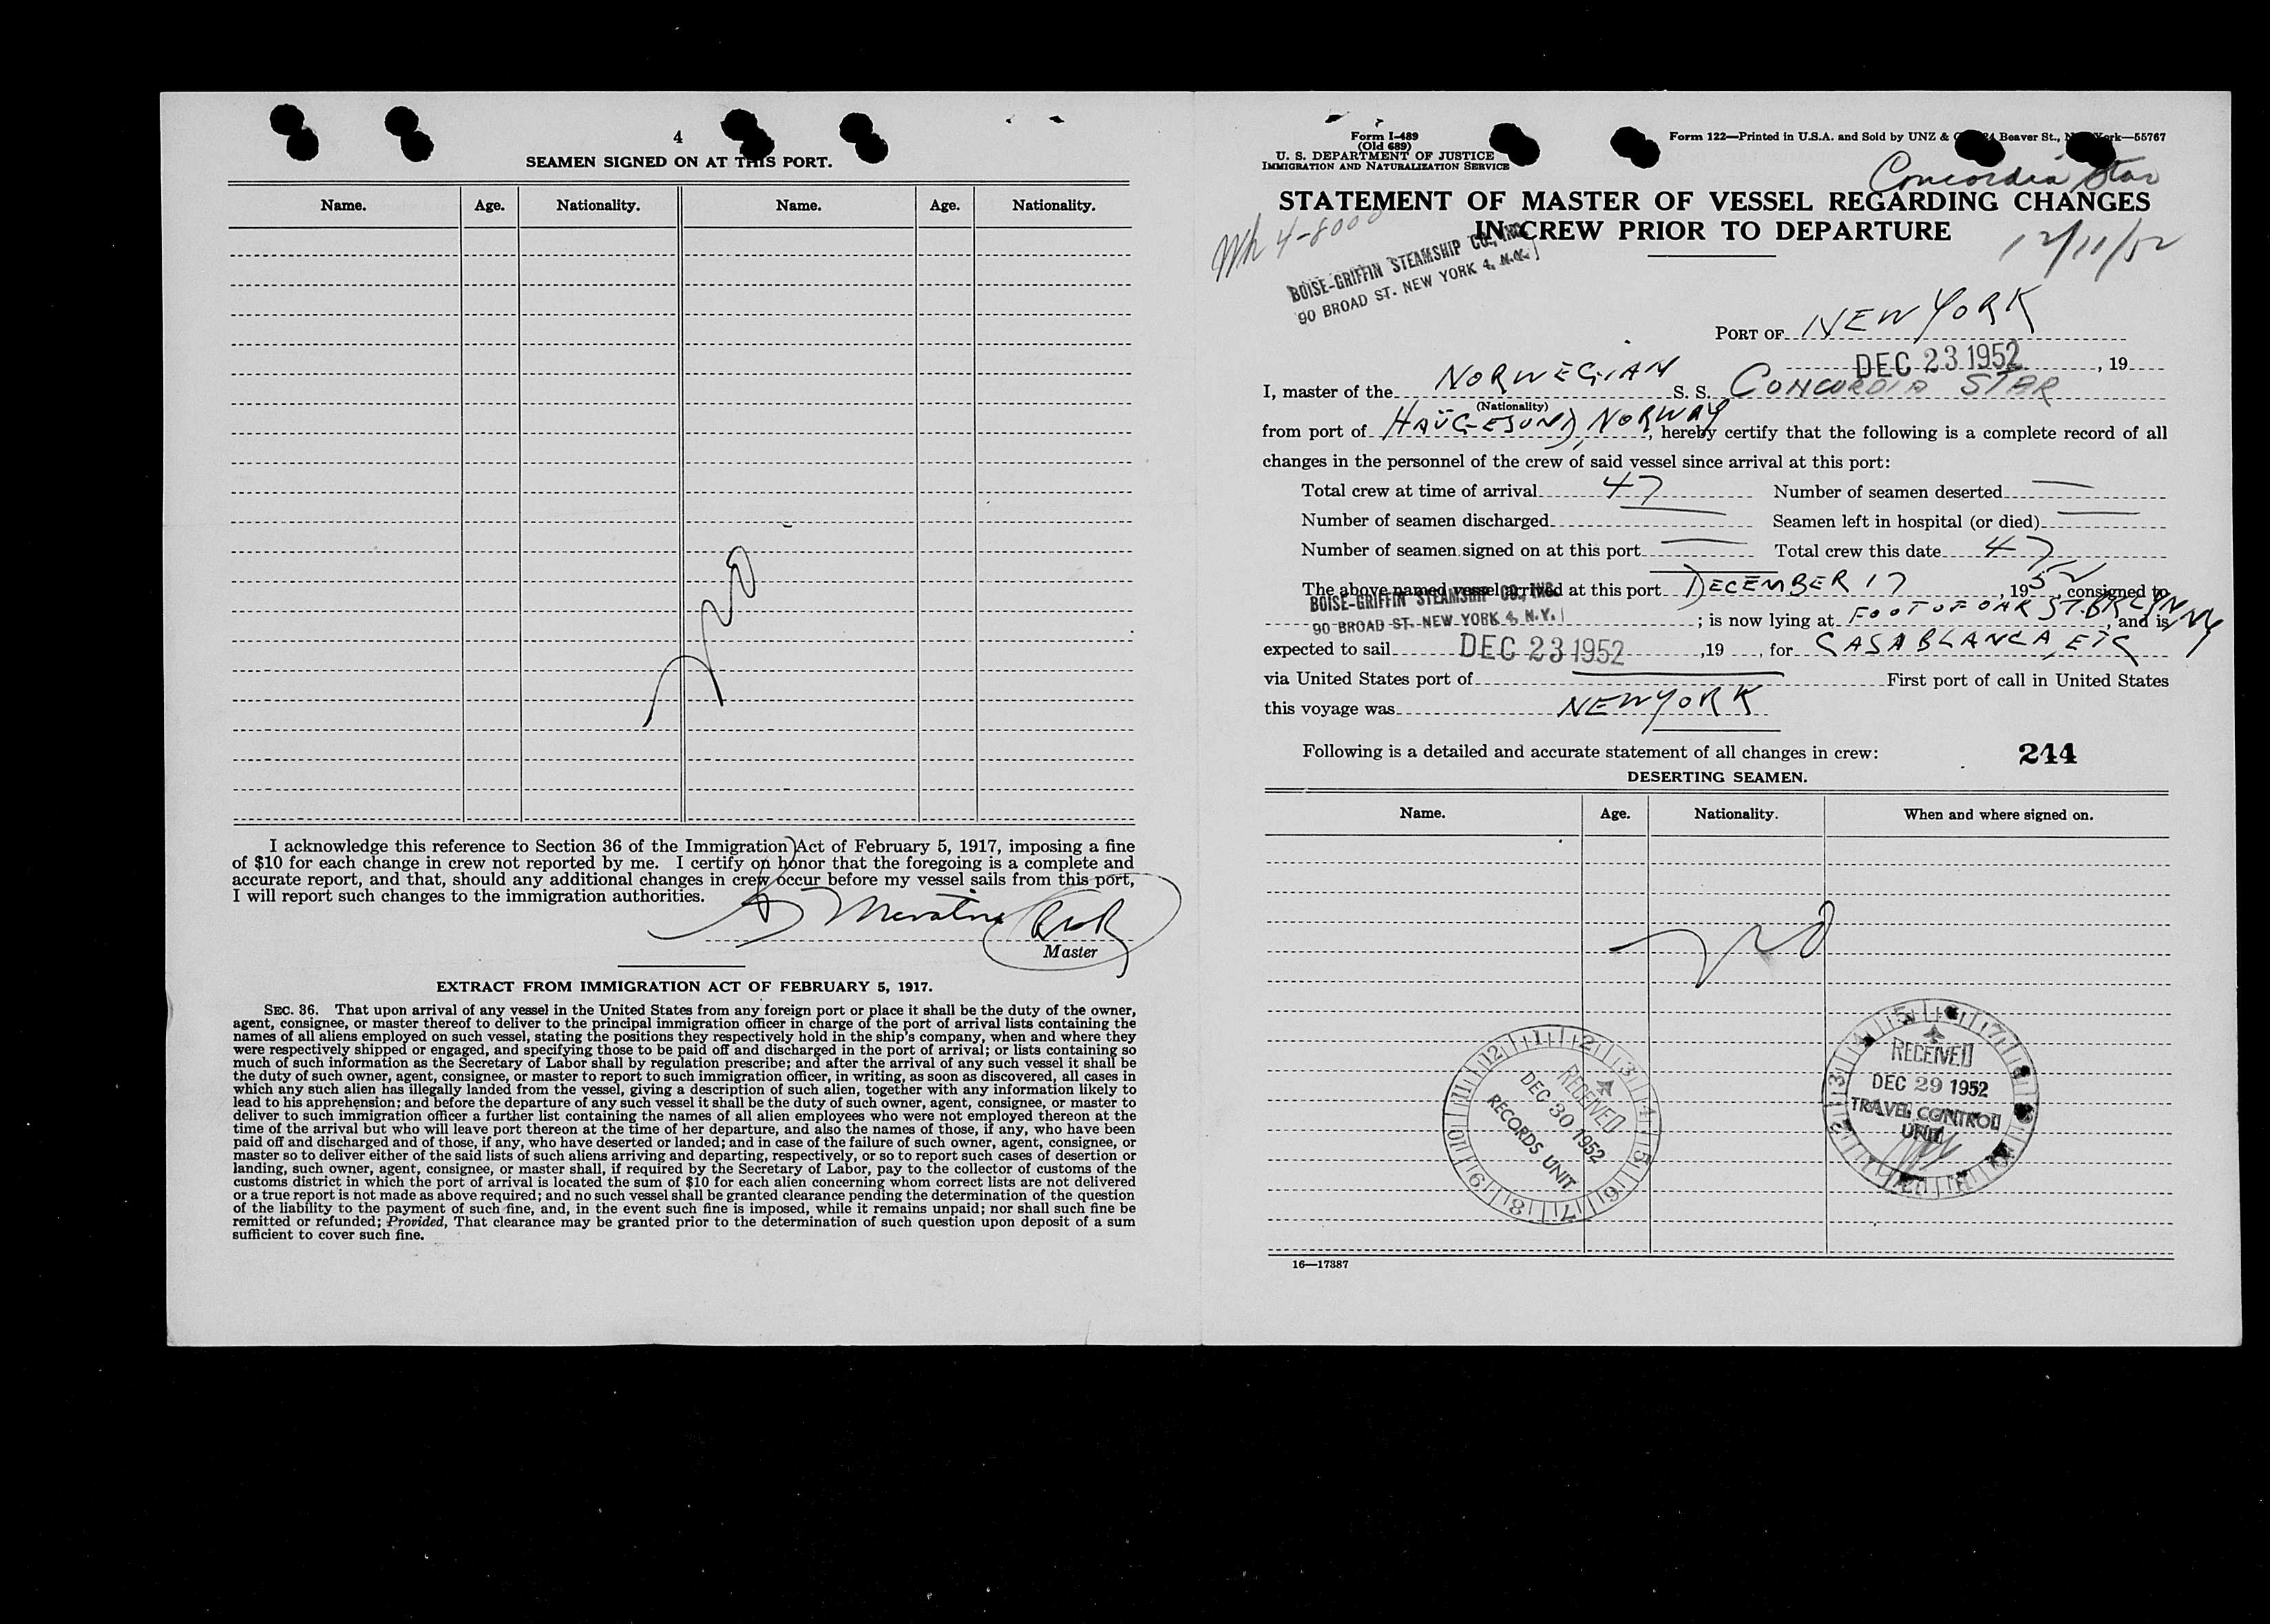 4
SEAMEN SIGNED ON AT THIS PORT.
Name. Age. Nationality. Name. Age. Nationality.
no
I acknowledge this reference to Section 36 of the Immigration Act of February 5, 1917, imposing a fine
of $10 for each change in crew not reported by me. I certify on honor that the foregoing is a complete and
accurate report, and that, should any additional changes in crew occur before my vessel sails from this port,
I will report such changes to the immigration authorities.
Master
EXTRACT FROM IMMIGRATION ACT OF FEBRUARY 5, 1917.
SEC. 36. That upon arrival of any vessel in the United States from any foreign port or place it shall be the duty of the owner,
agent, consignee, or master thereof to deliver to the principal immigration officer in charge of the port of arrival lists containing the
names of all aliens employed on such vessel, stating the positions they respectively hold in the ship's company, when and where they
were respectively shipped or engaged, and specifying those to be paid off and discharged in the port of arrival; or lists containing so
much of such information as the Secretary of Labor shall by regulation prescribe; and after the arrival of any such vessel it shall be
the duty of such owner, agent, consignee, or master to report to such immigration officer, in writing, as soon as discovered, all cases in
which any such alien has illegally landed from the vessel, giving a description of such alien, together with any information likely to
lead to his apprehension; and before the departure of any such vessel it shall be the duty of such owner, agent, consignee, or master to
deliver to such immigration officer a further list containing the names of all alien employees who were not employed thereon at the
time of the arrival but who will leave port thereon at the time of her departure, and also the names of those, if any, who have been
paid off and discharged and of those, if any, who have deserted or landed; and in case of the failure of such owner, agent, consignee, or
master so to deliver either of the said lists of such aliens arriving and departing, respectively, or so to report such cases of desertion or
landing, such owner, agent, consignee, or master shall, if required by the Secretary of Labor, pay to the collector of customs of the
customs district in which the port of arrival is located the sum of $10 for each alien concerning whom correct lists are not delivered
or a true report is not made as above required; and no such vessel shall be granted clearance pending the determination of the question
of the liability to the payment of such fine, and, in the event such fine is imposed, while it remains unpaid; nor shall such fine be
remitted or refunded; Provided, That clearance may be granted prior to the determination of such question upon deposit of a sum
sufficient to cover such fine.
Form I-489
(Old 689)
U. S. DEPARTMENT OF JUSTICE
IMMIGRATION AND NATURALIZATION SERVICE
Form 122—Printed in U.S.A. and Sold by UNZ & Beaver St., —55767
Concordia Star
STATEMENT OF MASTER OF VESSEL REGARDING CHANGES
IN CREW PRIOR TO DEPARTURE
Wh 4-8000
12/11/52
BOISE-GRIFFIN STEAMSHIP CO., INC.
90 BROAD ST. NEW YORK 4, N.Y.
PORT OF NEW YORK
DEC 23 1952, 19
I, master of the NORWEGIAN S. S. CONCORDIA STAR
(Nationality)
from port of HAUGESUND, NORWAY, hereby certify that the following is a complete record of all
changes in the personnel of the crew of said vessel since arrival at this port:
Total crew at time of arrival 47 Number of seamen deserted —
Number of seamen discharged — Seamen left in hospital (or died) —
Number of seamen signed on at this port — Total crew this date 47
The above named vessel arrived at this port DECEMBER 17, 1952, consigned to
BOISE-GRIFFIN STEAMSHIP CO., INC.
90 BROAD ST. NEW YORK 4, N.Y. ; is now lying at FOOT OF OAK ST. BKLYN NY, and is
expected to sail DEC 23 1952, 19 , for CASABLANCA, ETC
via United States port of — First port of call in United States
this voyage was NEW YORK
Following is a detailed and accurate statement of all changes in crew: 244
DESERTING SEAMEN.
Name. Age. Nationality. When and where signed on.
no
RECEIVED
DEC 30 1952
RECORDS UNIT
RECEIVED
DEC 29 1952
TRAVEL CONTROL
UNIT
16—17387